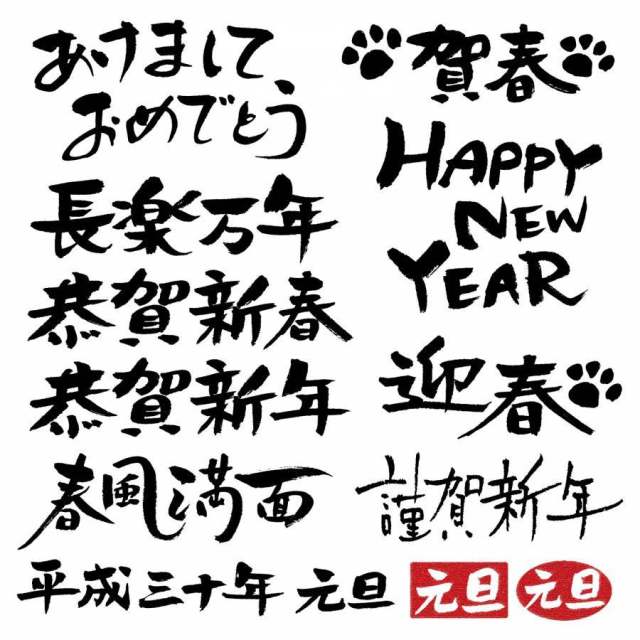 あけまして
おめでとう
長楽万年
恭賀新春
恭賀新年
春風満面
賀春
HAPPY
NEW
YEAR
迎春
謹賀新年
平成三十年 元旦 元旦 元旦